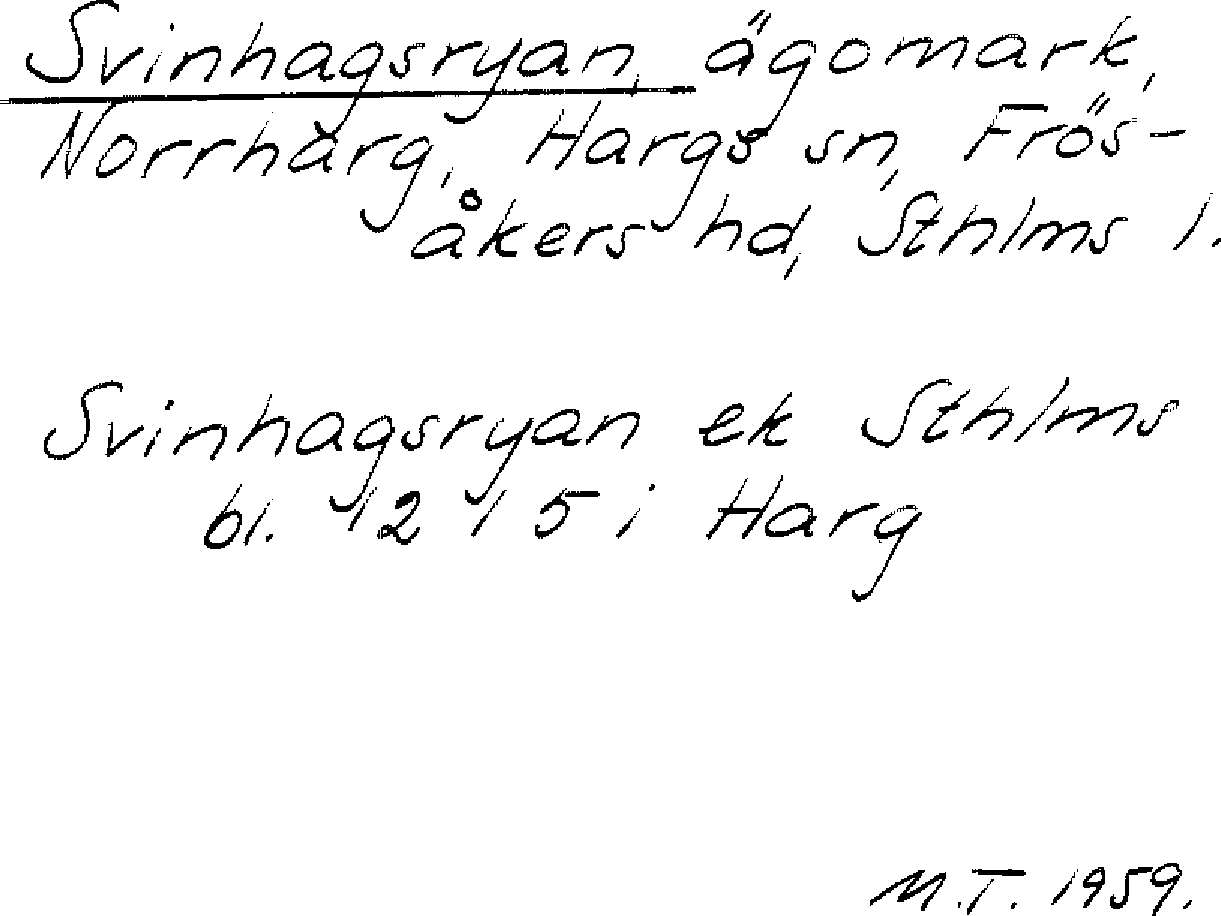 Svinhagsryan, ägomark,
Norrharg, Hargs sn, Frös-
åkers hd, Sthlms l.
Svinhagsryan ek Sthlms
bl. 12 1 5 i Harg
M.T. 1959.